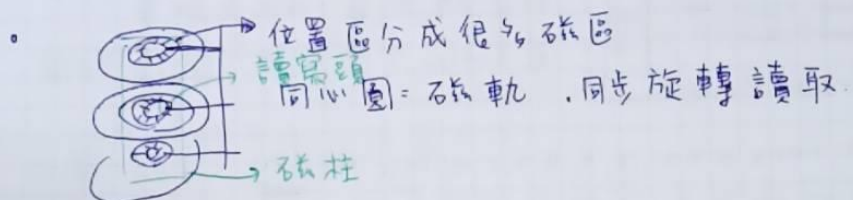 位置區分成很多磁區
讀寫頭
同心圓=磁軌 .同步旋轉讀取.
磁柱